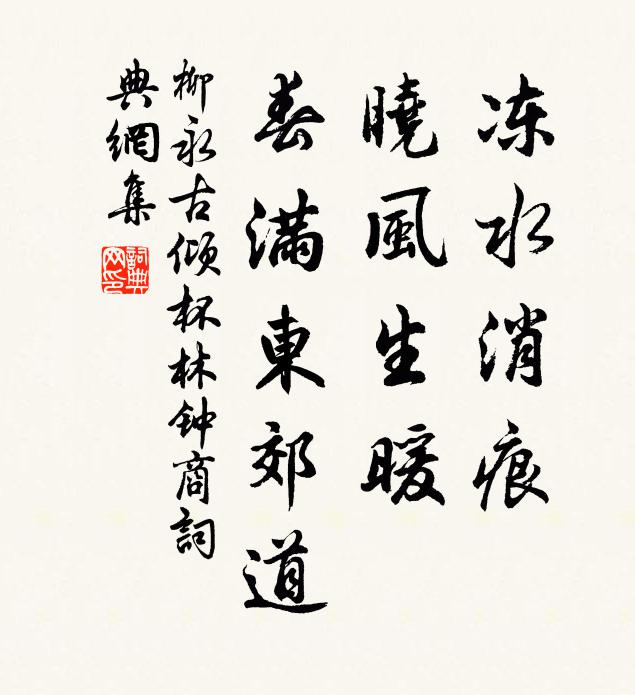 冻水消痕
曉風生暖
春满東郊道
柳永古倾杯林钟商詞
典網集
詞典
网印